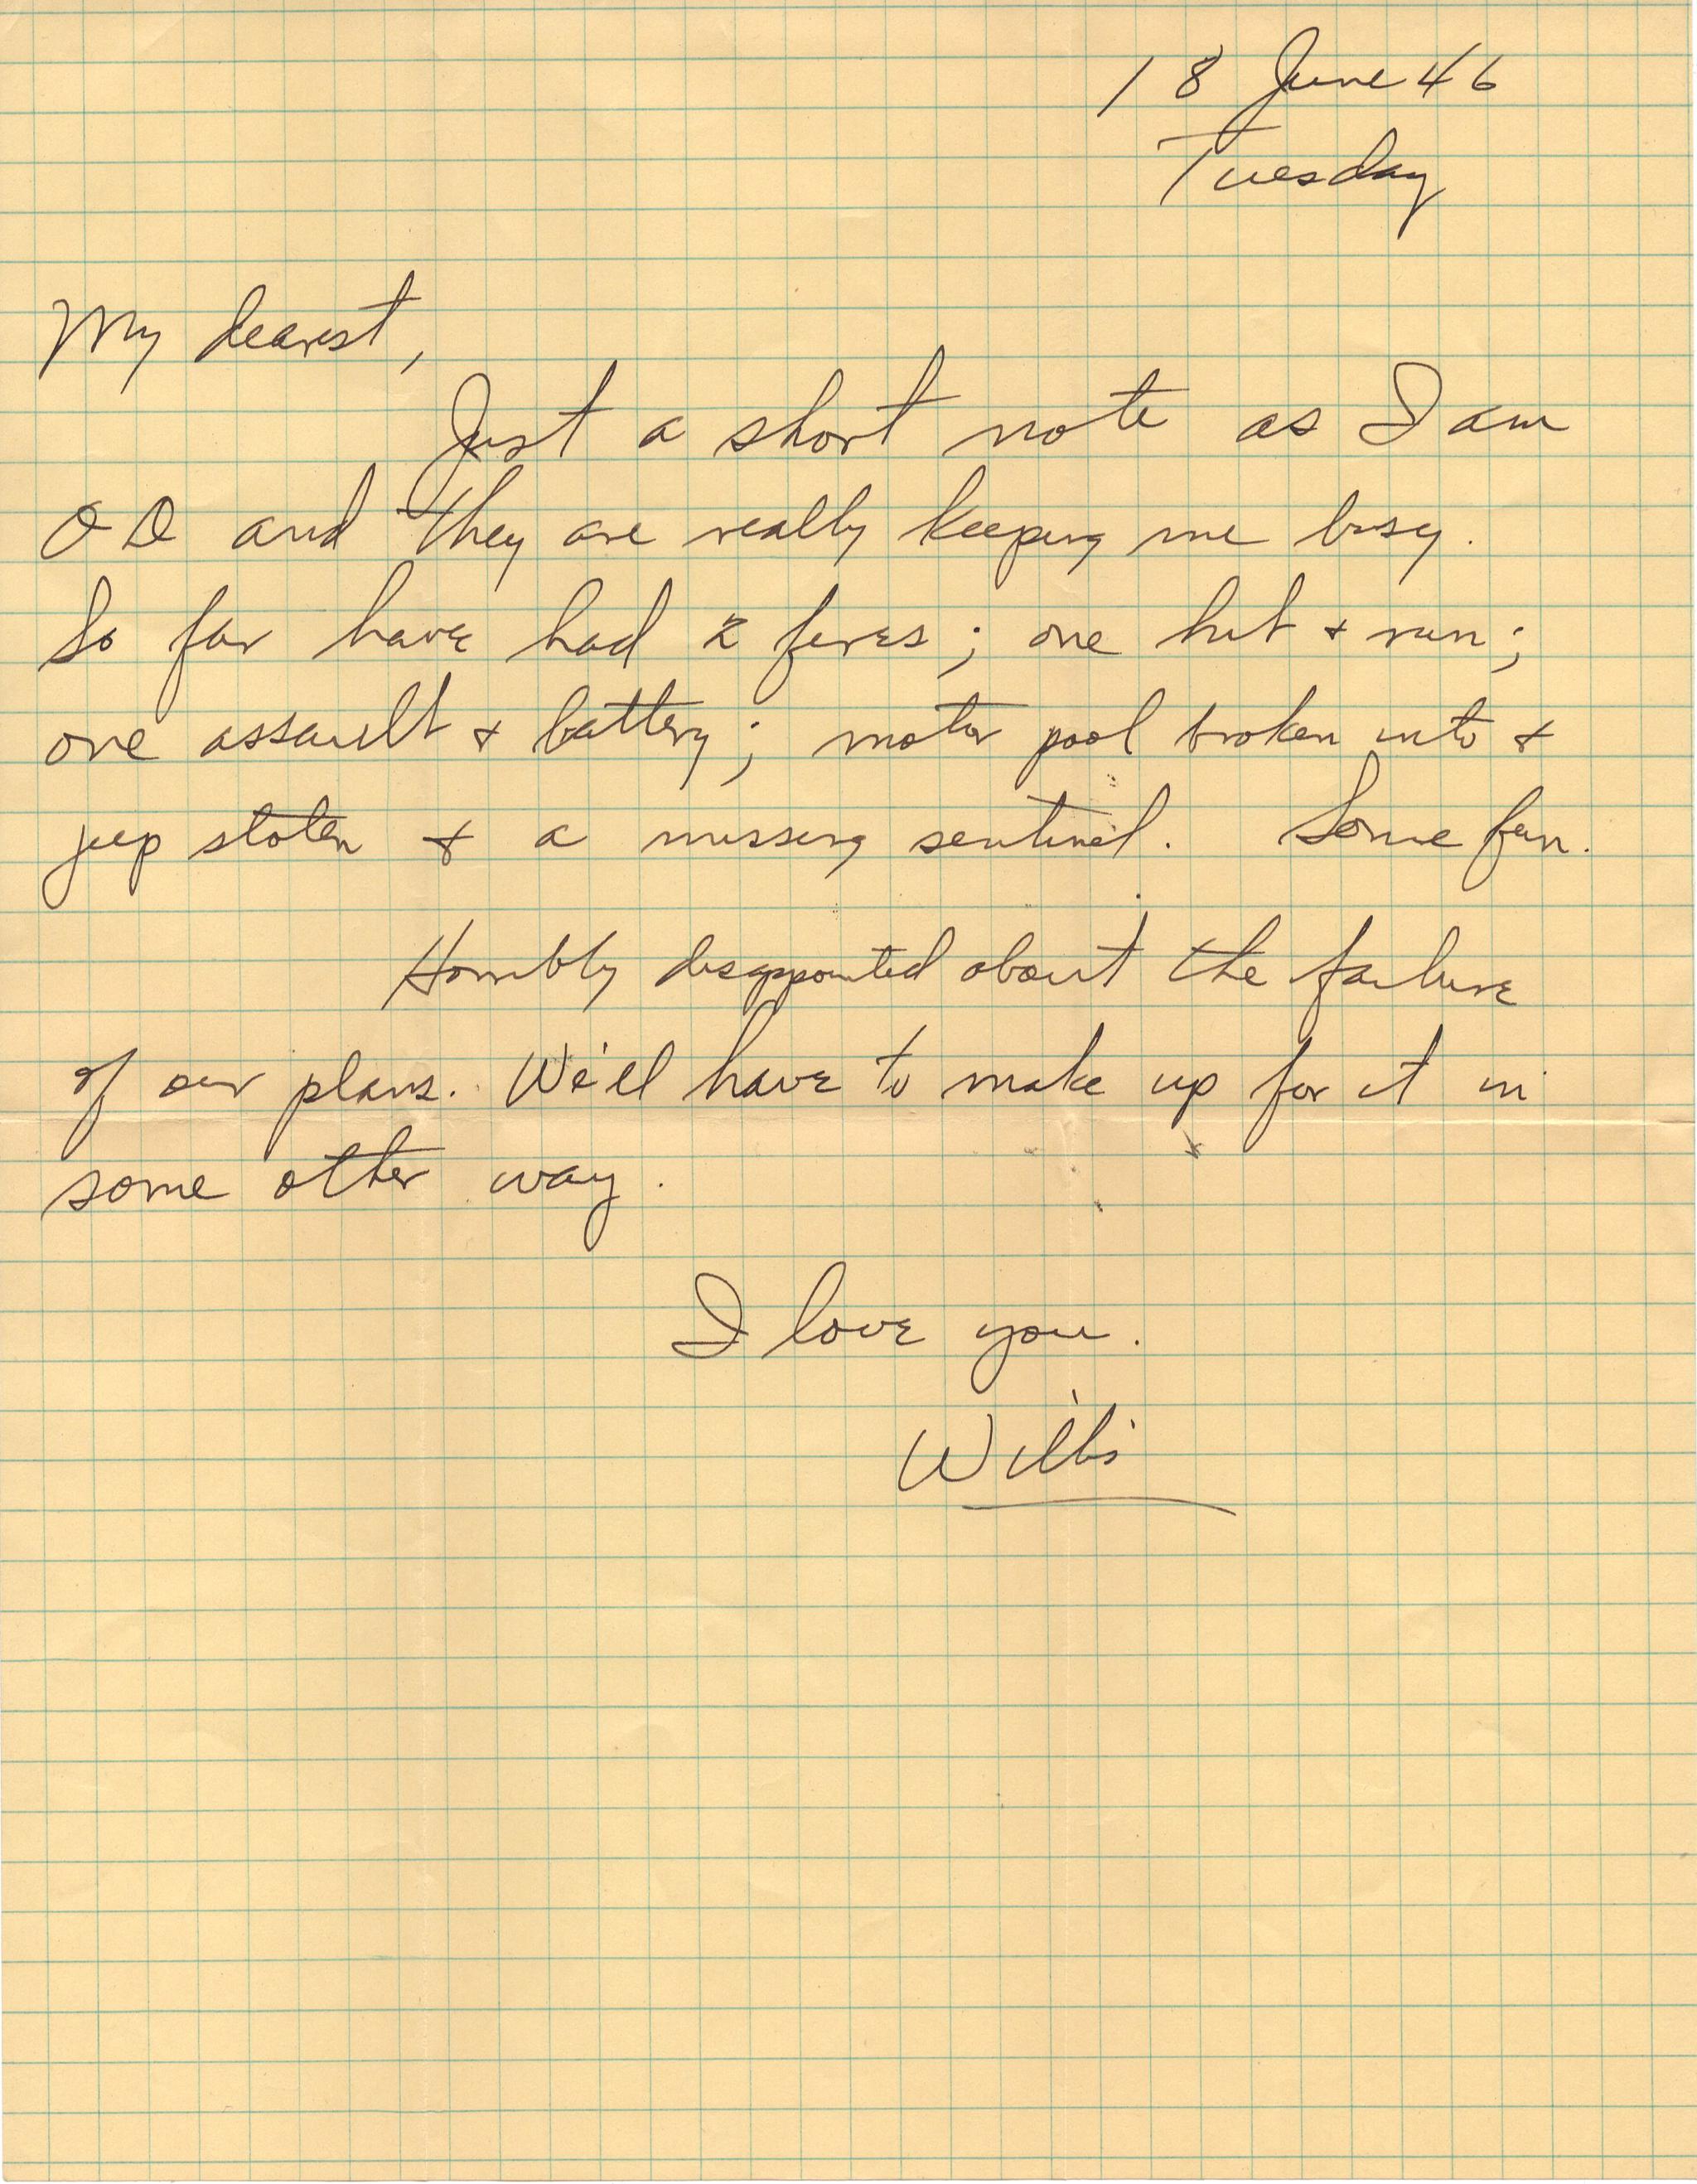 18 June 46
Tuesday
My dearest,
Just a short note as I am
OD and they are really keeping me busy.
So far have had 2 fires; one hit & run;
one assault & battery; motor pool broken into &
jeep stolen & a missing sentinel. Some fun.
Horribly disappointed about the failure
of our plans. We'll have to make up for it in
some other way.
I love you.
Willis